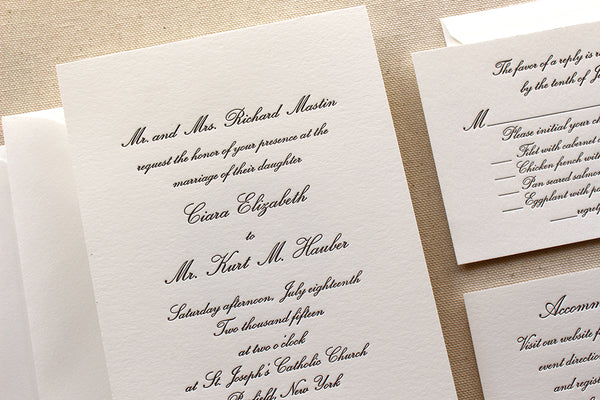 Mr. and Mrs. Richard Mastin
request the honor of your presence at the
marriage of their daughter
Ciara Elizabeth
to
Mr. Kurt M. Hauber
Saturday afternoon, July eighteenth
Two thousand fifteen
at two o'clock
at St. Joseph's Catholic Church
New York
The favor of a reply is
by the tenth of
M
Please initial your
Filet with cabernet
Chicken french with
Pan seared salmon
Eggplant with
Visit our website
event
and